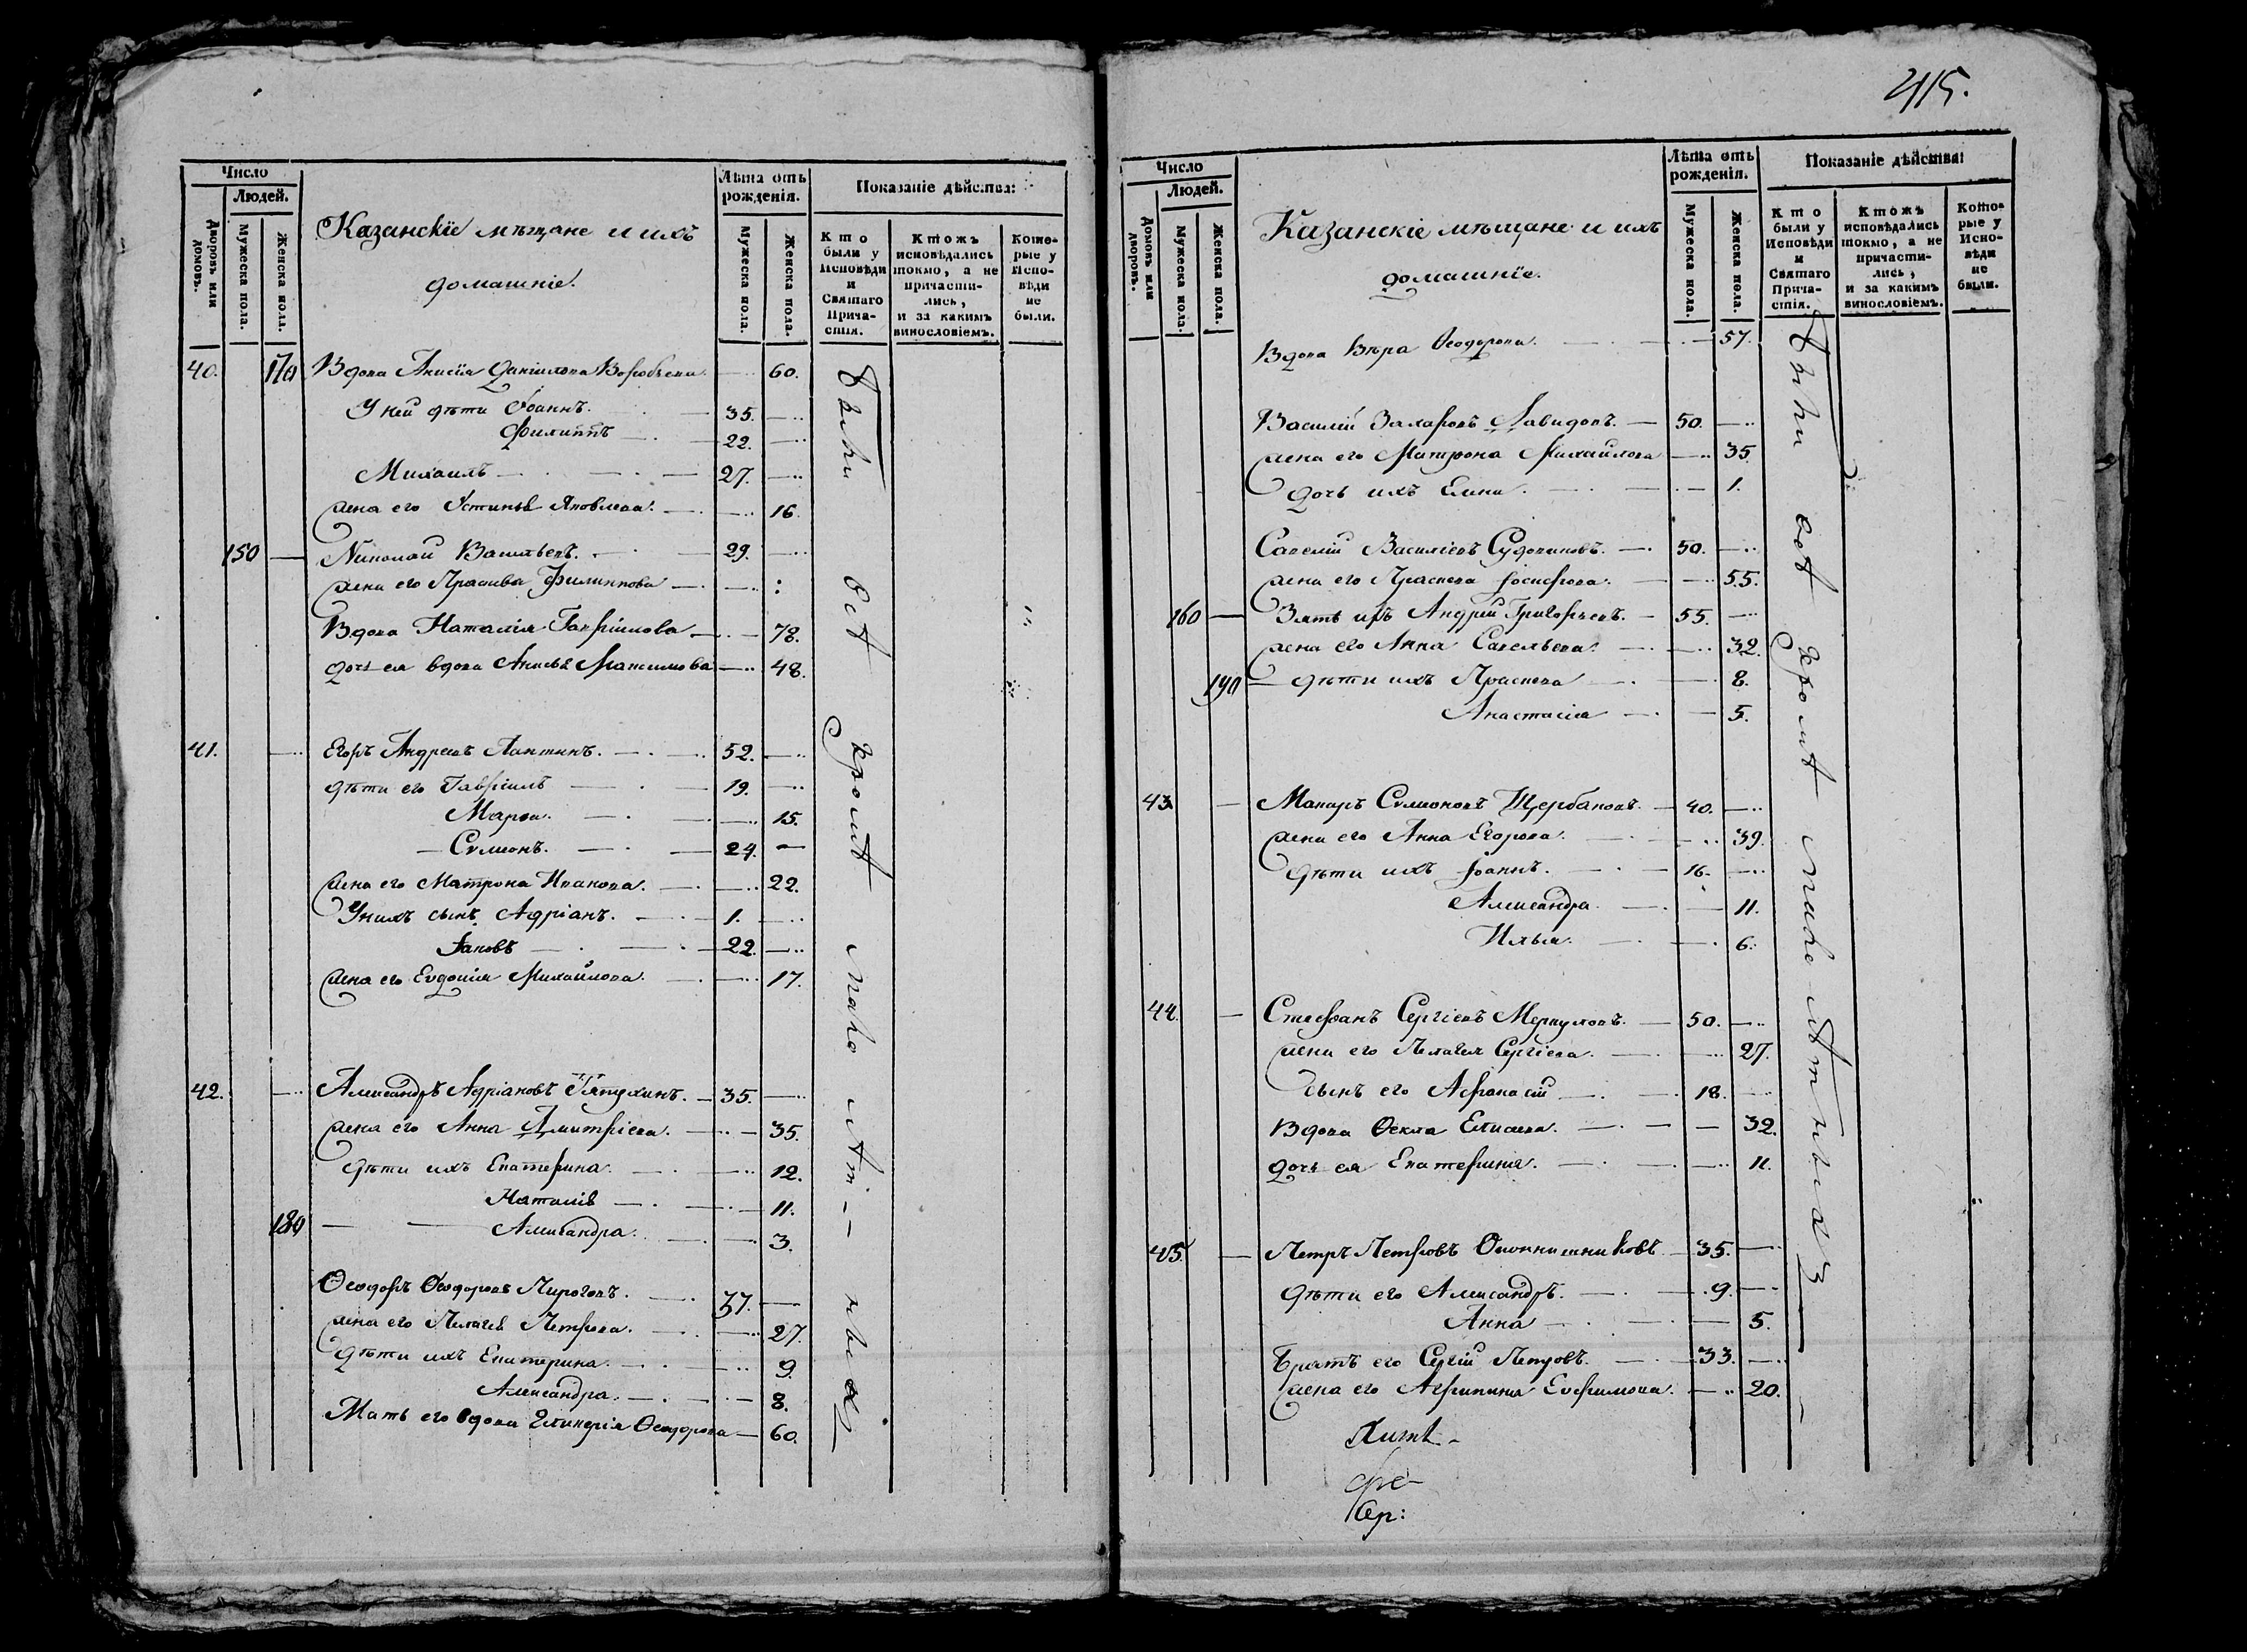 415.
Число
Людей.
Дворовъ или домовъ.
Мужеска пола.
Женска пола.
Казанскіе мѣщане и ихъ
домашніе.
Лѣта отъ рожденія.
Мужеска пола.
Женска пола.
Показаніе дѣйства:
Кто были у Исповѣди и Святаго Причастія.
Ктожъ исповѣдались токмо, а не причастились, и за какимъ винословіемъ.
Которые у Исповѣди не были.
40. 170 Вдова Анисія Данілова Воробьева. 60.
У ней дѣти Іоаннъ. 35.
Филиппъ 22.
Михаилъ 27.
жена его Устинья Яковлева. 16.
150 Николай Васильевъ. 29.
жена его Филиппова
Вдова Наталія Гавріилова 78.
дочь ея вдова Максимова 48.
41. Егоръ Андреевъ 52.
дѣти его Гавріилъ 19.
Марѳа. 15.
Сѵмеонъ. 24.
жена его Матрона Иванова. 22.
У нихъ сынъ Адріанъ. 1.
Іаковъ 22.
жена его Евдокія Михайлова. 17.
42. Александръ Адріановъ 35.
жена его Анна Дмитріева. 35.
дѣти ихъ Екатерина. 12.
Наталія 11.
180 Александра. 3.
Ѳеодоръ Ѳеодоровъ Пироговъ. 37.
жена его Пелагея Петрова. 27.
дѣти ихъ Екатерина. 9.
Александра. 8.
Мать его вдова Гликерія Ѳеодорова 60.
Были всѣ кромѣ
Число
Людей.
Домовъ или дворовъ.
Мужеска пола.
Женска пола.
Казанскіе мѣщане и ихъ
домашніе.
Лѣта отъ рожденія.
Мужеска пола.
Женска пола.
Показаніе дѣйства:
Кто были у Исповѣди и Святаго Причастія.
Ктожъ исповѣдались токмо, а не причастились, и за какимъ винословіемъ.
Которые у Исповѣди не были.
Вдова Вѣра Ѳеодорова. 57.
Василій Захаровъ Давидовъ. 50.
жена его Матрона Михайлова 35.
дочь ихъ Елена. 1.
Савелій Василіевъ 50.
жена его Праскева Іосифова. 55.
160 Зять ихъ Андрей Григорьевъ. 55.
жена его Анна Савельева. 32.
190 дѣти ихъ Праскева 8.
Анастасія 5.
43. Макаръ Сѵмеоновъ Щербаковъ. 40.
жена его Анна Егорова. 39.
дѣти ихъ Іоаннъ. 16.
Александра. 11.
Илья. 6.
44. Стефанъ Сергіевъ Меркуловъ. 50.
жена его Пелагея Сергіева. 27.
сынъ его Аѳанасій 18.
Вдова Ѳекла Елисеева. 32.
дочь ея Екатерина. 11.
45. Петръ Петровъ Оконнишниковъ 35.
дѣти его Александръ. 9.
Анна 5.
Братъ его Сергій Петровъ. 33.
жена его Агрипина Евфимова. 20.
Были всѣ кромѣ малолѣтныхъ